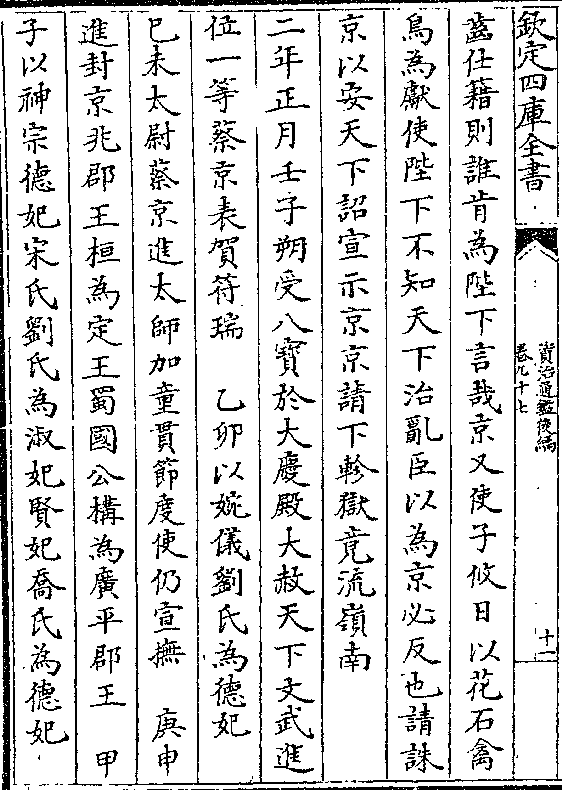 欽定四庫全書
資治通鑑後編
卷九十七
十一
蓋仕籍則誰肯為陛下言哉京又使子攸日以花石禽
鳥為獻使陛下不知天下治亂臣以為京必反也請誅
京以安天下詔宣示京京請下軫獄竟流嶺南
二年正月壬子朔受八寶於大慶殿大赦天下文武進
位一等蔡京表賀符瑞　乙卯以婉儀劉氏為德妃
巳未太尉蔡京進太師加童貫節度使仍宣撫　庚申
進封京兆郡王桓為定王蜀國公構為廣平郡王　甲
子以神宗德妃宋氏劉氏為淑妃賢妃喬氏為德妃